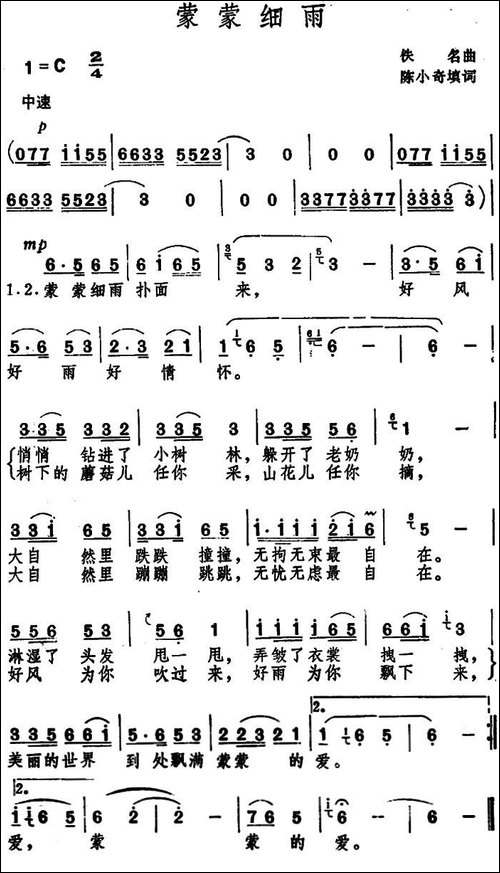 蒙蒙细雨
1=C 2/4
佚名曲
陈小奇填词
中速
p
(077 i i55 | 6633 5523 | 3 0 0 | 0 0 | 077 i i55 |
6633 5523 | 3 0 | 0 0 | 3377 3377 | 3333 3) |
mp
6·5 65 | 6i 65 | 5 3 2 | 3 - | 3·5 6i |
1.2.蒙 蒙细雨 扑面 来, 好 风
5·6 53 | 2·3 21 | 1 6 5 | 6 - | 6 - |
好 雨 好 情 怀。
335 332 | 335 3 | 335 56 | 5 - |
悄悄 钻进了 小树 林,躲开了 老奶 奶,
树下的 蘑菇儿 任你 采,山花儿 任你 摘,
33i 33i | 335 65 | i·iii 2i6 | 5 - |
大自 然里 跌跌 撞撞,无拘无束最 自 在。
大自 然里 蹦蹦 跳跳,无忧无虑最 自 在。
556 53 | 56 1 | iiii i65 | 66i 3 |
淋湿了 头发 甩一 甩,弄皱了衣裳 拽一 拽,
好风 为你 吹过 来,好雨 为你 飘下 来,
2.
3356 66i | 5653 5 | 223 21 | 1 65 | 6 - :|
美丽的世界 到 处飘满 蒙蒙 的 爱。
2.
i i6 5 | 6 2 | 2 - | 76 5 | 6 - | 6 - ‖
爱, 蒙 蒙 的 爱。